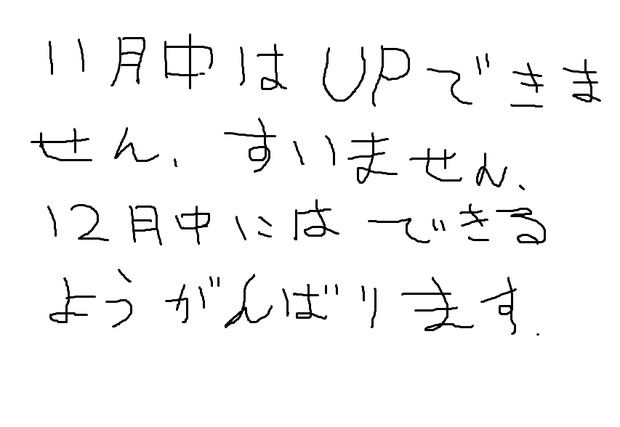 11月中はUPできま
せん、すいません、
12月中にはできる
ようがんばります.